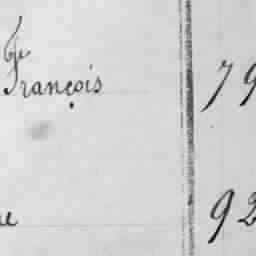 François 79
92